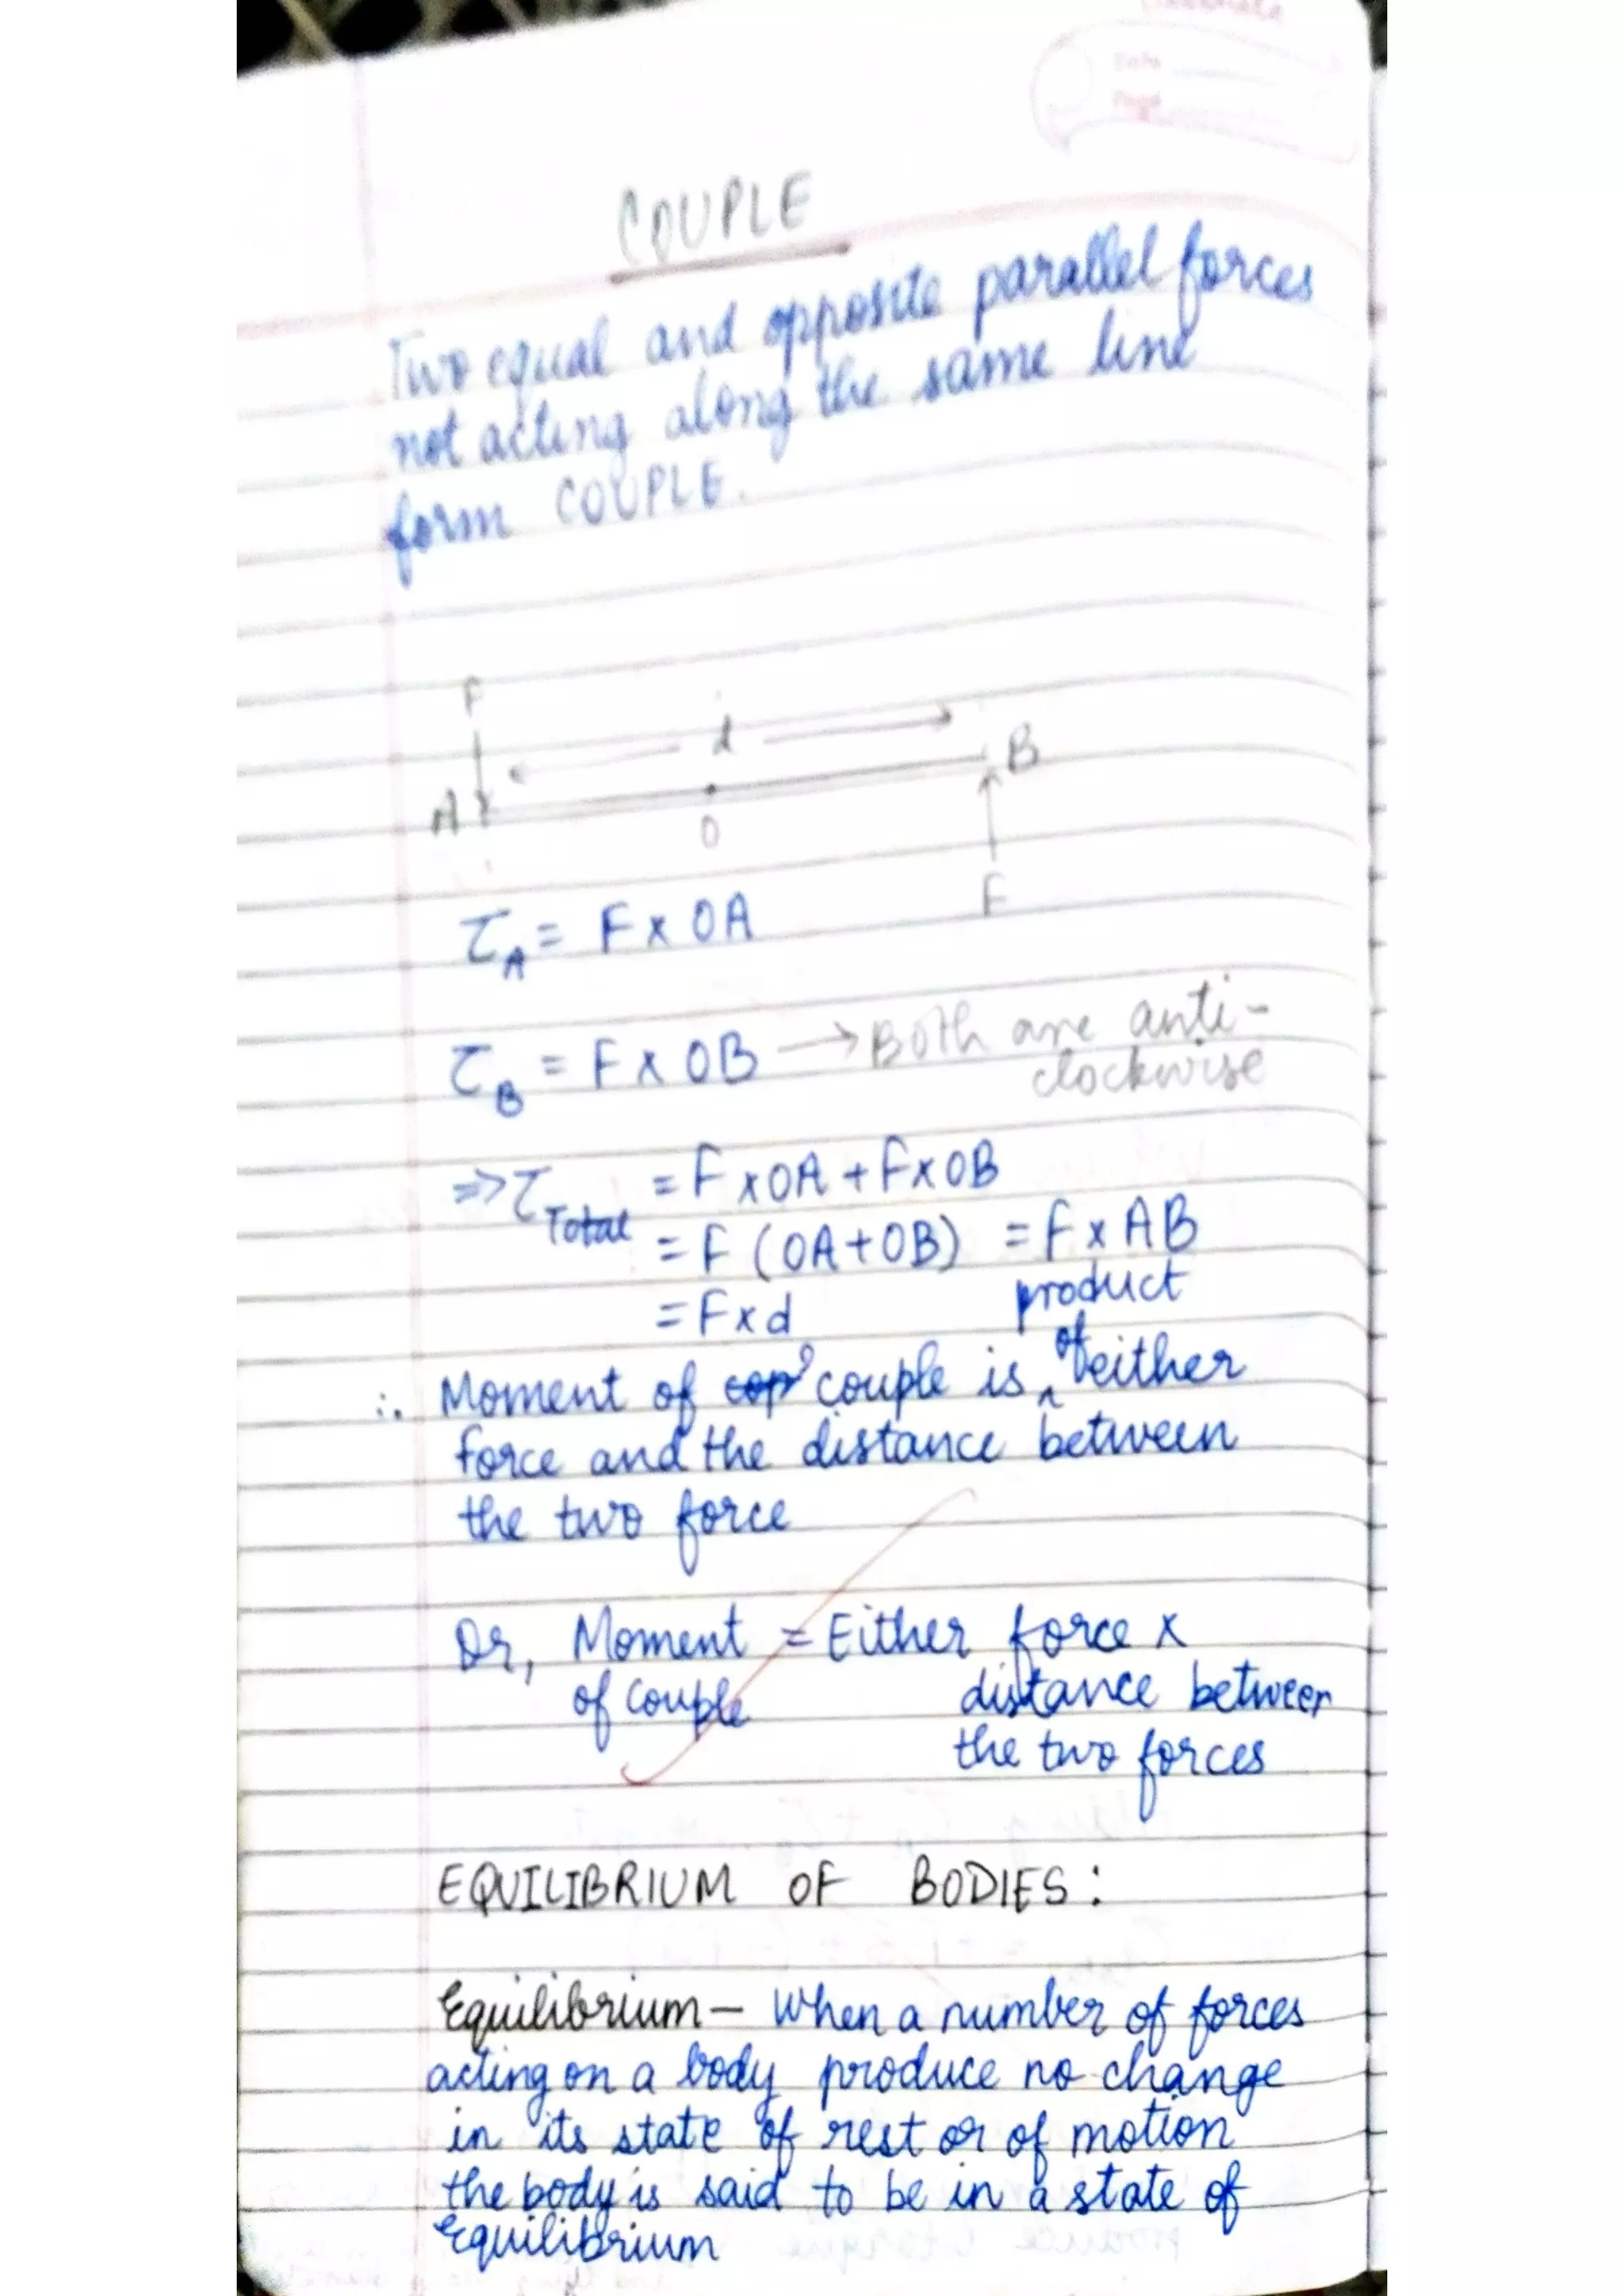 Date
COUPLE
Two equal and opposite parallel forces
not acting along the same line
form COUPLE.
F
d
A
B
O
F
τA = F x OA
τB = F x OB → Both are anti-
clockwise
⇒ τTotal = F x OA + F x OB
= F (OA + OB) = F x AB
= F x d
product
of
∴ Moment of couple is ^ either
force and the distance between
the two force
Or, Moment = Either force x
of couple distance between
the two forces
EQUILIBRIUM OF BODIES :
Equilibrium — When a number of forces
acting on a body produce no change
in its state of rest or of motion
the body is said to be in a state of
Equilibrium